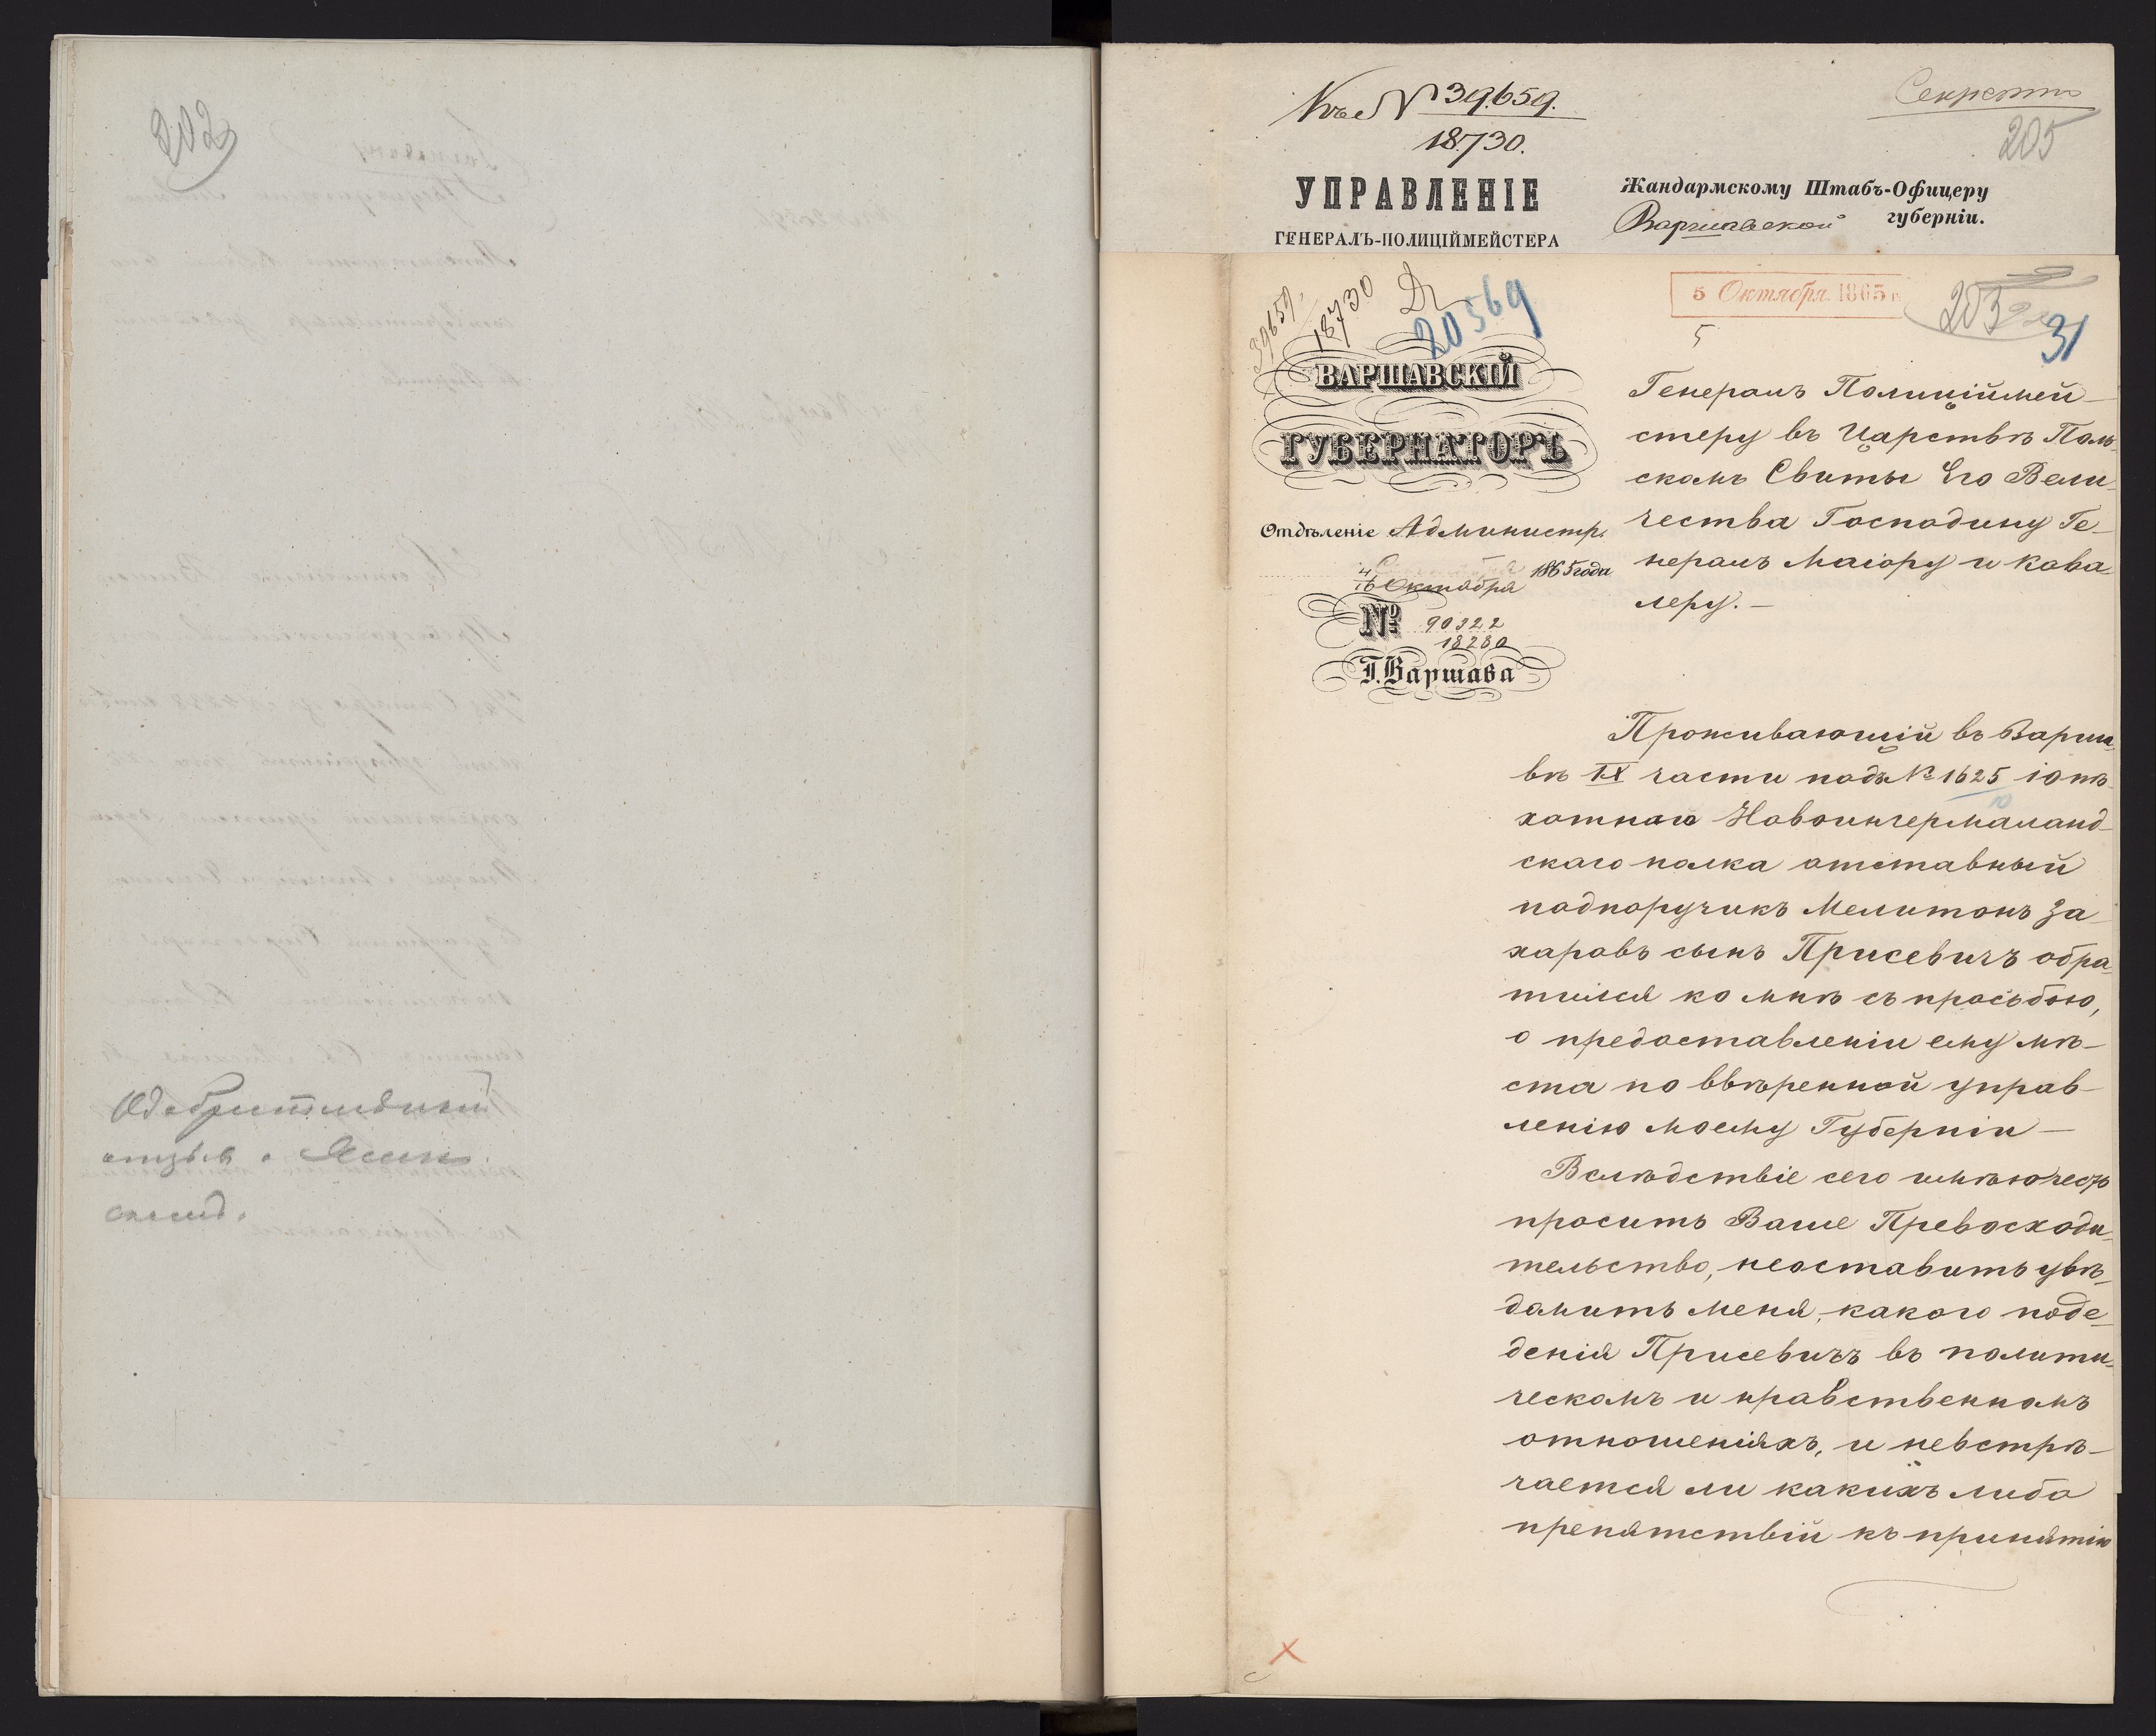 202
Одобрительный
отзывъ о
Къ № 39.659.
18730.
Секретно
205
УПРАВЛЕНІЕ
ГЕНЕРАЛЪ-ПОЛИЦІЙМЕЙСТЕРА
Жандармскому Штабъ-Офицеру
Варшавской губерніи.
39659.
18730
20569
5 Октября 1865 г.
5
203
31
ВАРШАВСКІЙ
ГУБЕРНАТОРЪ
Отдѣленіе Администр.
4/16 Октября 1865 года
№ 90322
18280
Г. Варшава
Генералъ Полиціймей-
стеру въ Царствѣ Поль-
скомъ Свиты Его Вели-
чества Господину Ге-
нералъ Маіору и Кава-
леру. —
Проживающій въ Варша-
вѣ IX части подъ № 1625 10 пѣ-
хотнаго Новоингерманланд-
скаго полка отставный
подпоручикъ Мелитонъ За-
харовъ сынъ Присевичъ обра-
тился ко мнѣ съ просьбою,
о предоставленіи ему мѣ-
ста по ввѣренной управ-
ленію моему Губерніи —
Вслѣдствіе сего имѣю честь
просить Ваше Превосходи-
тельство, неоставить увѣ-
домить меня, какого пове-
денія Присевичъ въ полити-
ческомъ и нравственномъ
отношеніяхъ, и невстрѣ-
чается ли какихъ либо
препятствій къ принятію